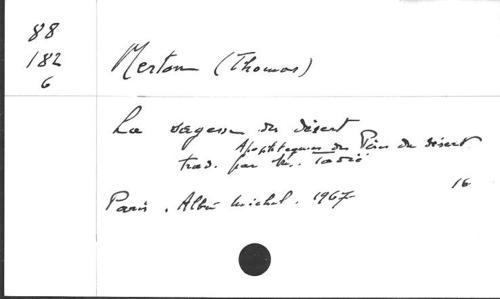 88
182
6
Merton (Thomas)
La sagesse du désert
Apophtegmes des Pères du désert
trad. par M. Tadié
16
Paris. Albin Michel. 1967